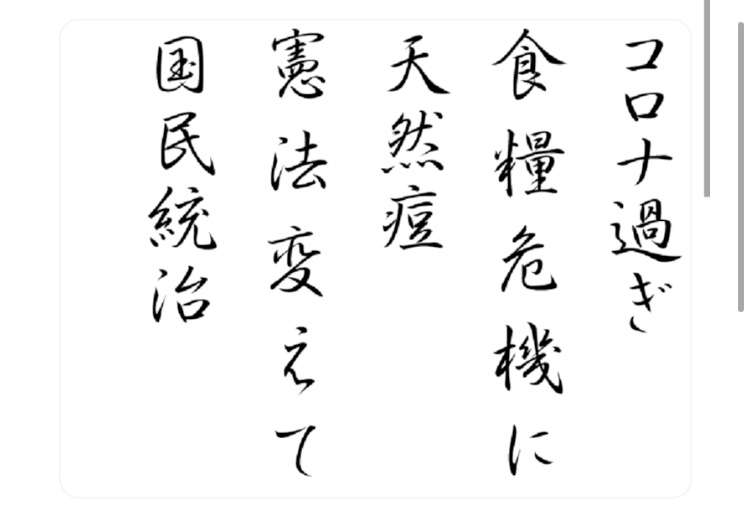 コロナ過ぎ
食糧危機に
天然痘
憲法変えて
国民統治